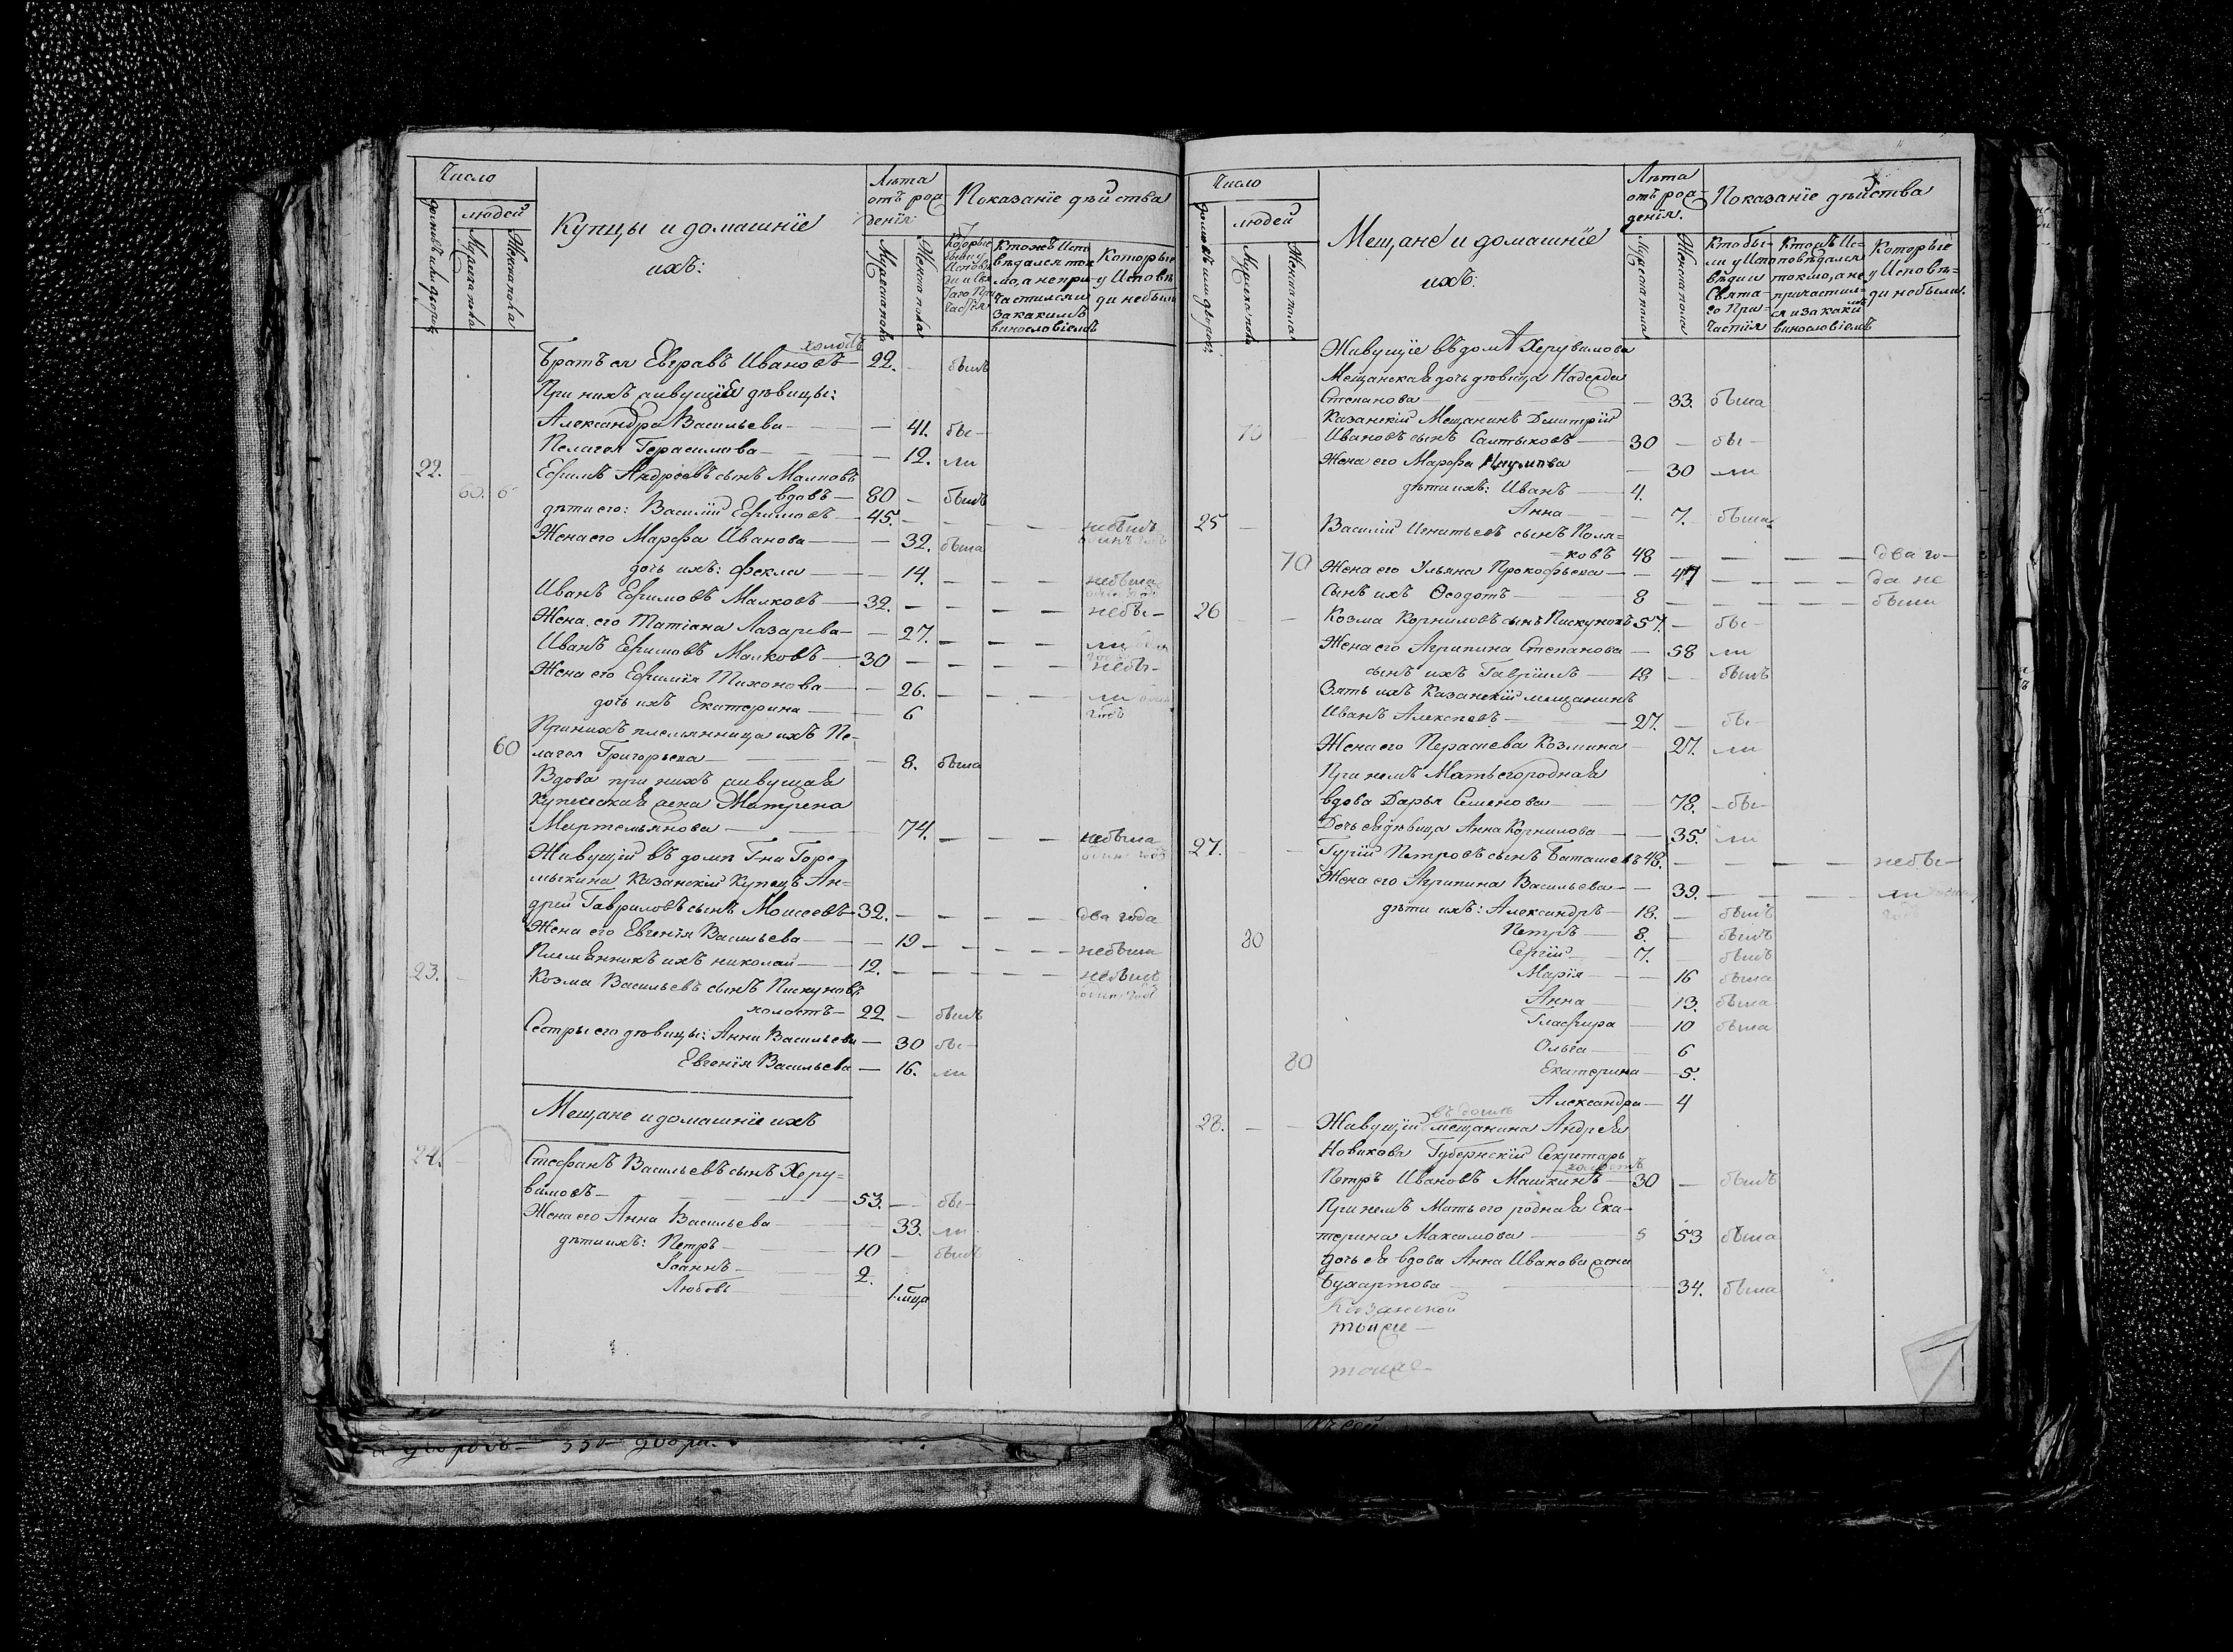 Число
людей
Купцы и домашнїе
ихъ:
Лѣта
отъ рож
денїя:
Показанїе дѣйства
домовъ или дворовъ
Мужеска пола
Женска пола
Мужеска пола
Женска пола
Которые
были у
Исповѣ
ди и Свя
таго При
частїя
Ктожъ Испо
вѣдался ток
мо, а не при
частился и
за какимъ
винословїемъ
Которые
у Исповѣ
ди не были
холостъ
Братъ ея Евграфъ Ивановъ 22. былъ
При нихъ живущїя дѣвицы:
Александра Васильева 41. бы-
Пелагея Герасимова 12. ли
22. Ефимъ Андреевъ сынъ Малковъ
60. вдовъ 80 былъ
дѣти его: Василїй Ефимовъ 45. небылъ
одинъ годъ
Жена его Марфа Иванова 32. была
дочь ихъ: Фекла 14. небыла
одинъ годъ
Иванъ Ефимовъ Малковъ 32. небы-
Жена его Татїана Лазарева 27. ли
Иванъ Ефимовъ Малковъ 30 небы-
Жена его Ефимїя Тихонова 26. ли один
дочь ихъ Екатерина 6 годъ
При нихъ племянница ихъ Пе-
60 лагея Григорьева 8. была
Вдова при нихъ живущая
купеческая жена Матрена
Мартемьянова 74. небыла
один годъ
Живущїй въ доме Г-на Горе-
мыкина Казанскїй Купецъ Ан=
дрей Гавриловъ сынъ Моисеевъ 32. два года
Жена его Евгенїя Васильева 19 небыли
Племянникъ ихъ николай 12. небылъ
один год
23. Козма Васильевъ сынъ Пискуновъ
холостъ 22 былъ
Сестры его дѣвицы: Анна Васильева 30 бы-
Евгенїя Васильева 16. ли
Мещане и домашнїе ихъ
24. Стефанъ Васильевъ сынъ Херу=
вимовъ 53. бы-
Жена его Анна Васильева 33. ли
дѣти ихъ: Петръ 10 былъ
Іоаннъ 2.
Любовь 1 мца
Число
людей
Мещане и домашнїе
ихъ:
Лѣта
отъ рож
денїя.
Показанїе дѣйства
домовъ или дворовъ
Мужеска пола
Женска пола
Мужеска пола
Женска пола
Кто бы-
ли у Испо
вѣди и
Свята-
го При=
частїя
Ктожъ Ис-
повѣдался
токмо, а не
причастил-
ся и за каки
мъ
винословїемъ
Которые
у Исповѣ=
ди небыли.
Живущїе въ домѣ Херувимова
Мещанская дочь дѣвица Надежда
Степанова 33. была
Казанскїй Мещанинъ Димитрїй
70 Ивановъ сынъ Салтыковъ 30 бы-
Жена его Марфа Наумова 30 ли
дѣти ихъ: Иванъ 4.
Анна 7. была
25 Василїй Игнатьевъ сынъ Поля=
ковъ 48 два го-
70 Жена его Ульяна Прокофьева 47 да не
Сынъ ихъ Ѳеодотъ 8 были
26 Козма Корниловъ сынъ Пискуновъ 57. бы-
Жена его Агрипина Степанова 58 ли
сынъ ихъ Гаврїилъ 18 былъ
Зять ихъ Казанскїй мещанинъ
Иванъ Алексеевъ 27. бы-
Жена его Параскева Козмина 27. ли
При немъ Мать его родная
вдова Дарья Семенова 78. бы-
Дочь ея дѣвица Анна Корнилова 35. ли
27. Гурїй Петровъ сынъ Баташевъ 48. небы-
Жена его Агрипина Васильева 39. ли
дѣти ихъ: Александръ 18. былъ
80 Петръ 8. былъ
Сергїй 7. былъ
Марїя 16 была
Анна 13. была
Глафира 10 была
Ольга 6
80 Екатерина 5.
Александра 4
въ доме
28. Живущїй мещанина Андрея
Новикова Губернскїй Секретарь
холостъ
Петръ Ивановъ Машкинъ 30 былъ
При немъ Мать его родная Ека-
терина Максимова 53 была
Дочь ея вдова Анна Иванова жена
Бухартова 34. была
Казанской
тоже
тоже